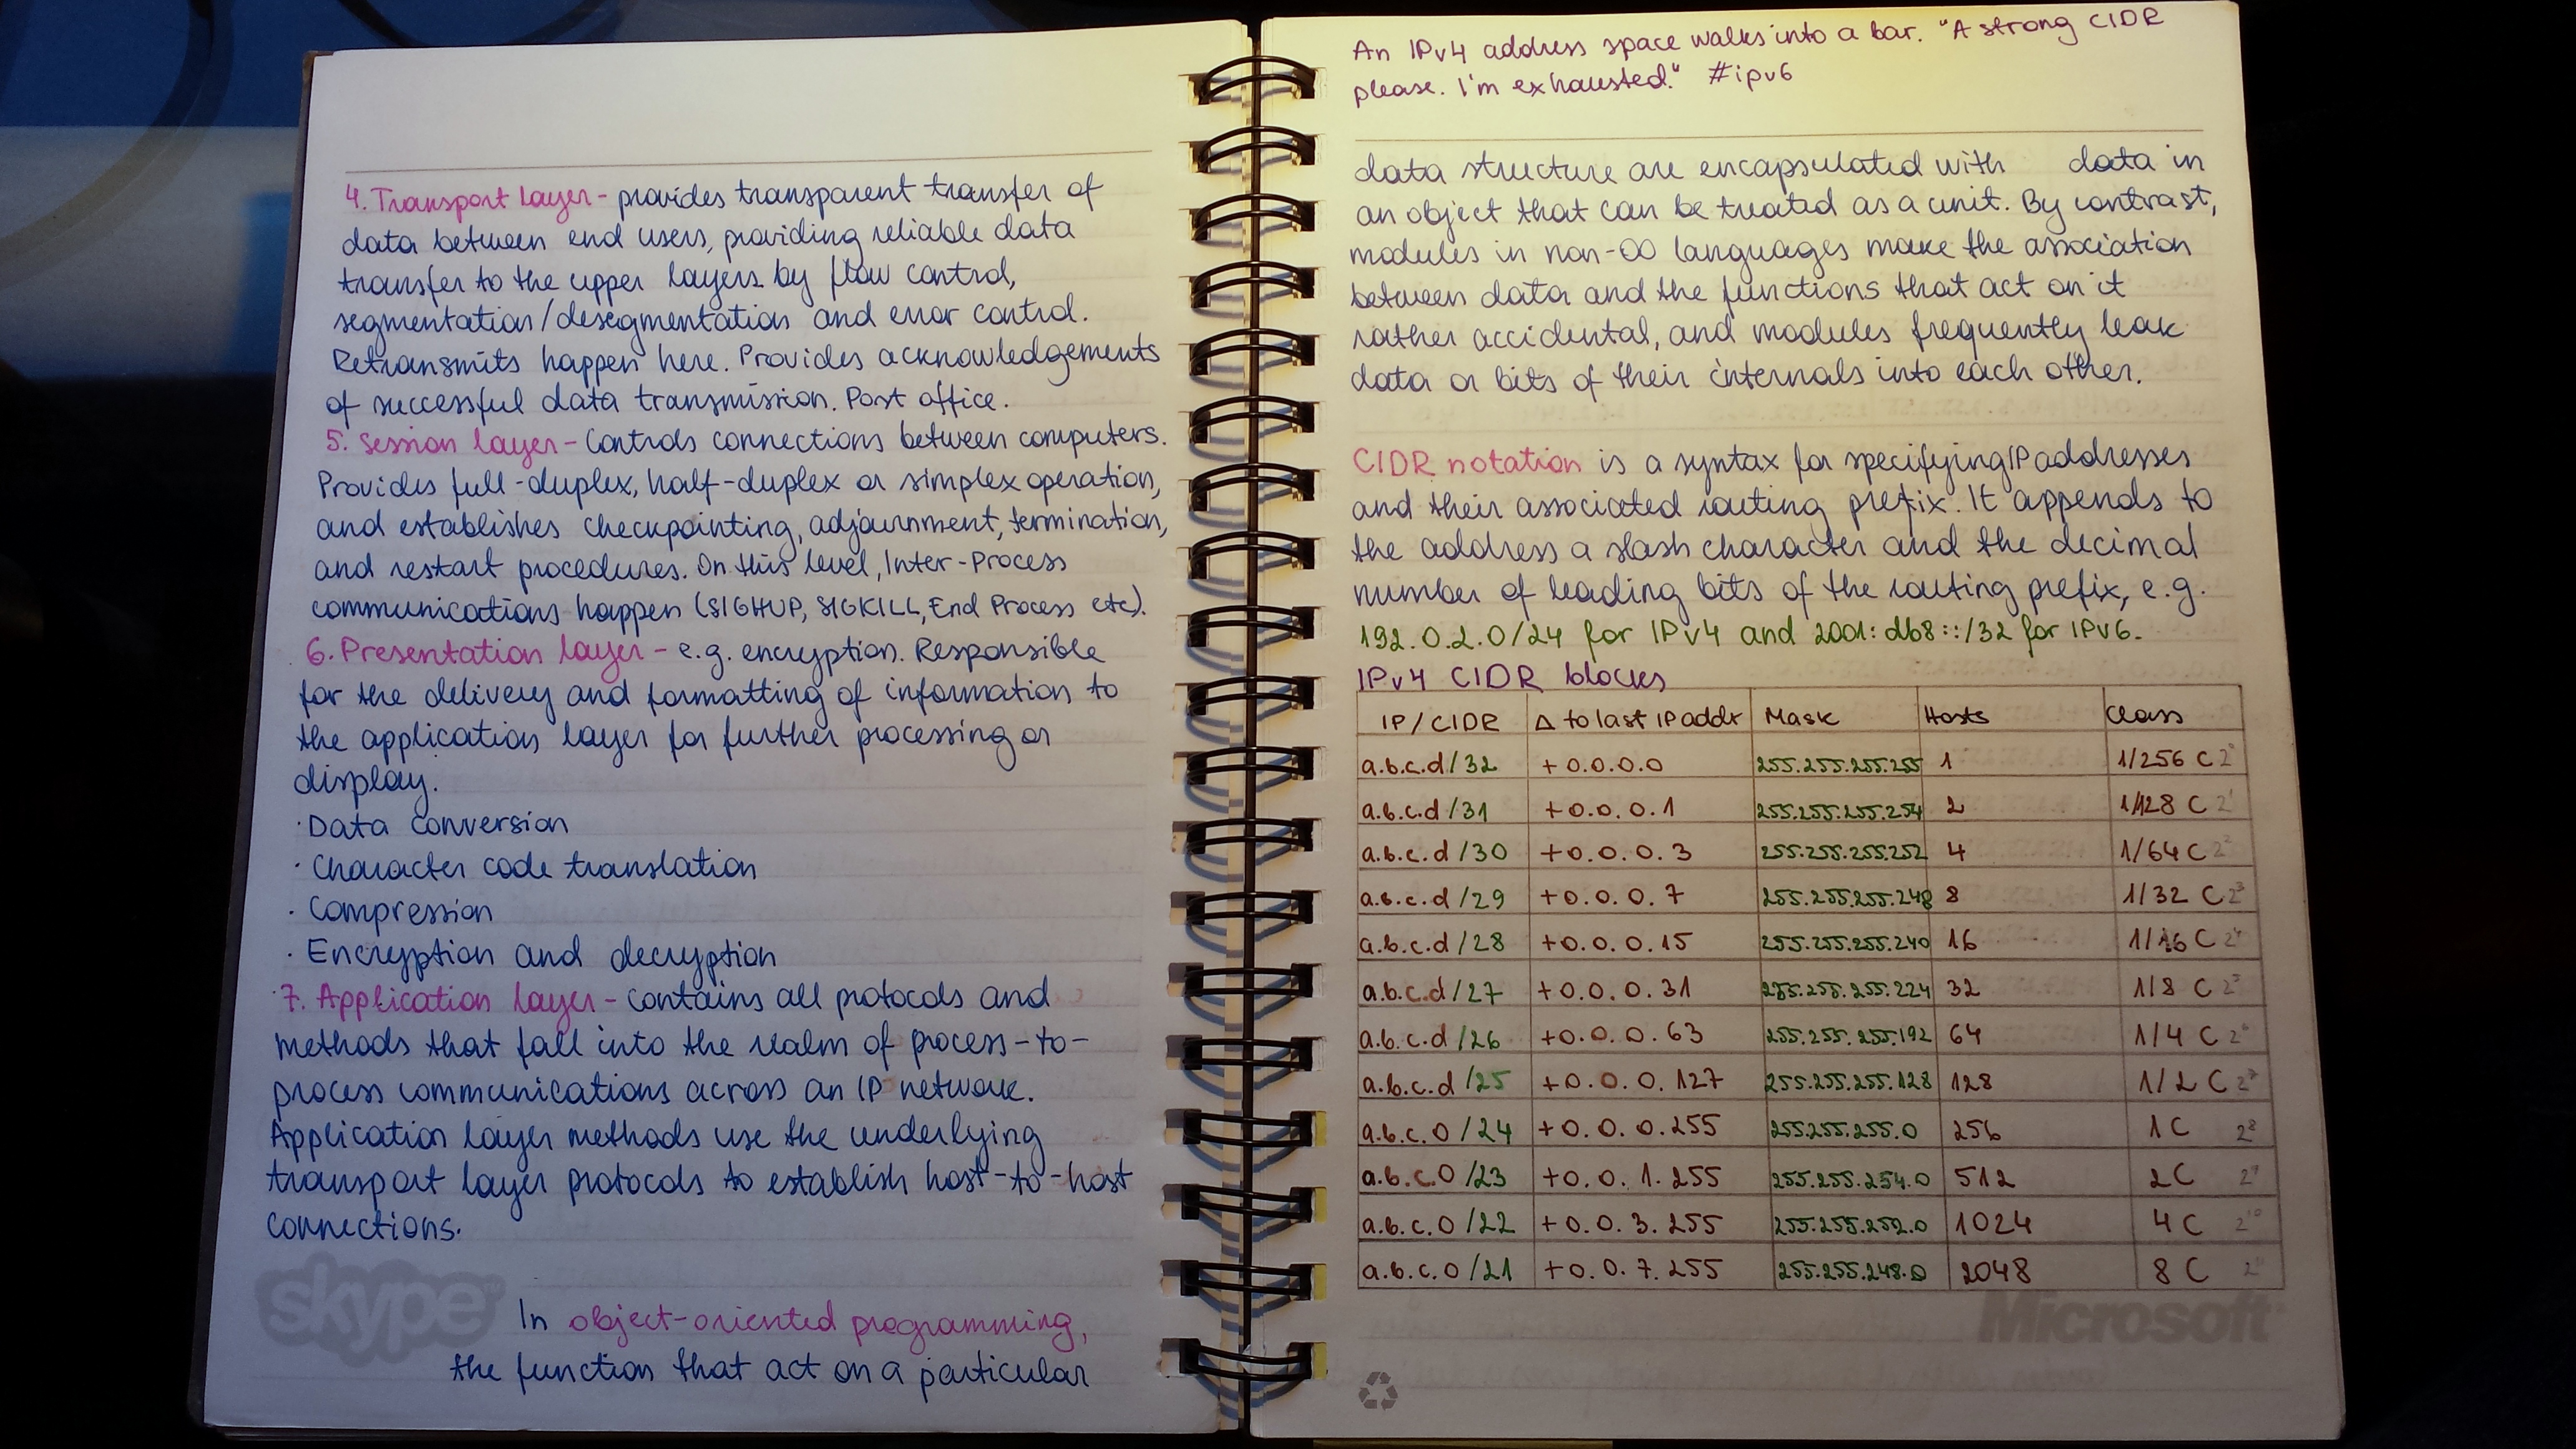 4. Transport layer - provides transparent transfer of
data between end users, providing reliable data
transfer to the upper layers by flow control,
segmentation/desegmentation and error control.
Retransmits happen here. Provides acknowledgements
of successful data transmission. Post office.
5. Session layer - Controls connections between computers.
Provides full-duplex, half-duplex or simplex operation,
and establishes checkpointing, adjournment, termination,
and restart procedures. On this level, Inter-Process
communications happen (SIGHUP, SIGKILL, End Process etc).
6. Presentation layer - e.g. encryption. Responsible
for the delivery and formatting of information to
the application layer for further processing or
display.
· Data conversion
· Character code translation
· Compression
· Encryption and decryption
7. Application layer - contains all protocols and
methods that fall into the realm of process-to-
process communications across an IP network.
Application layer methods use the underlying
transport layer protocols to establish host-to-host
connections.
skype
In object-oriented programming,
the function that act on a particular
An IPv4 address space walks into a bar. "A strong CIDR
please. I'm exhausted." #ipv6
data structure are encapsulated with data in
an object that can be treated as a unit. By contrast,
modules in non-OO languages make the association
between data and the functions that act on it
rather accidental, and modules frequently leak
data or bits of their internals into each other.
CIDR notation is a syntax for specifying IP addresses
and their associated routing prefix. It appends to
the address a slash character and the decimal
number of leading bits of the routing prefix, e.g.
192.0.2.0/24 for IPv4 and 2001:db8::/32 for IPv6.
IPv4 CIDR blocks
IP/CIDR Δ to last IP addr Mask Hosts Class
a.b.c.d/32 +0.0.0.0 255.255.255.255 1 1/256 C 2⁰
a.b.c.d/31 +0.0.0.1 255.255.255.254 2 1/128 C 2¹
a.b.c.d/30 +0.0.0.3 255.255.255.252 4 1/64 C 2²
a.b.c.d/29 +0.0.0.7 255.255.255.248 8 1/32 C 2³
a.b.c.d/28 +0.0.0.15 255.255.255.240 16 1/16 C 2⁴
a.b.c.d/27 +0.0.0.31 255.255.255.224 32 1/8 C 2⁵
a.b.c.d/26 +0.0.0.63 255.255.255.192 64 1/4 C 2⁶
a.b.c.d/25 +0.0.0.127 255.255.255.128 128 1/2 C 2⁷
a.b.c.0/24 +0.0.0.255 255.255.255.0 256 1 C 2⁸
a.b.c.0/23 +0.0.1.255 255.255.254.0 512 2 C 2⁹
a.b.c.0/22 +0.0.3.255 255.255.252.0 1024 4 C 2¹⁰
a.b.c.0/21 +0.0.7.255 255.255.248.0 2048 8 C 2¹¹
Microsoft